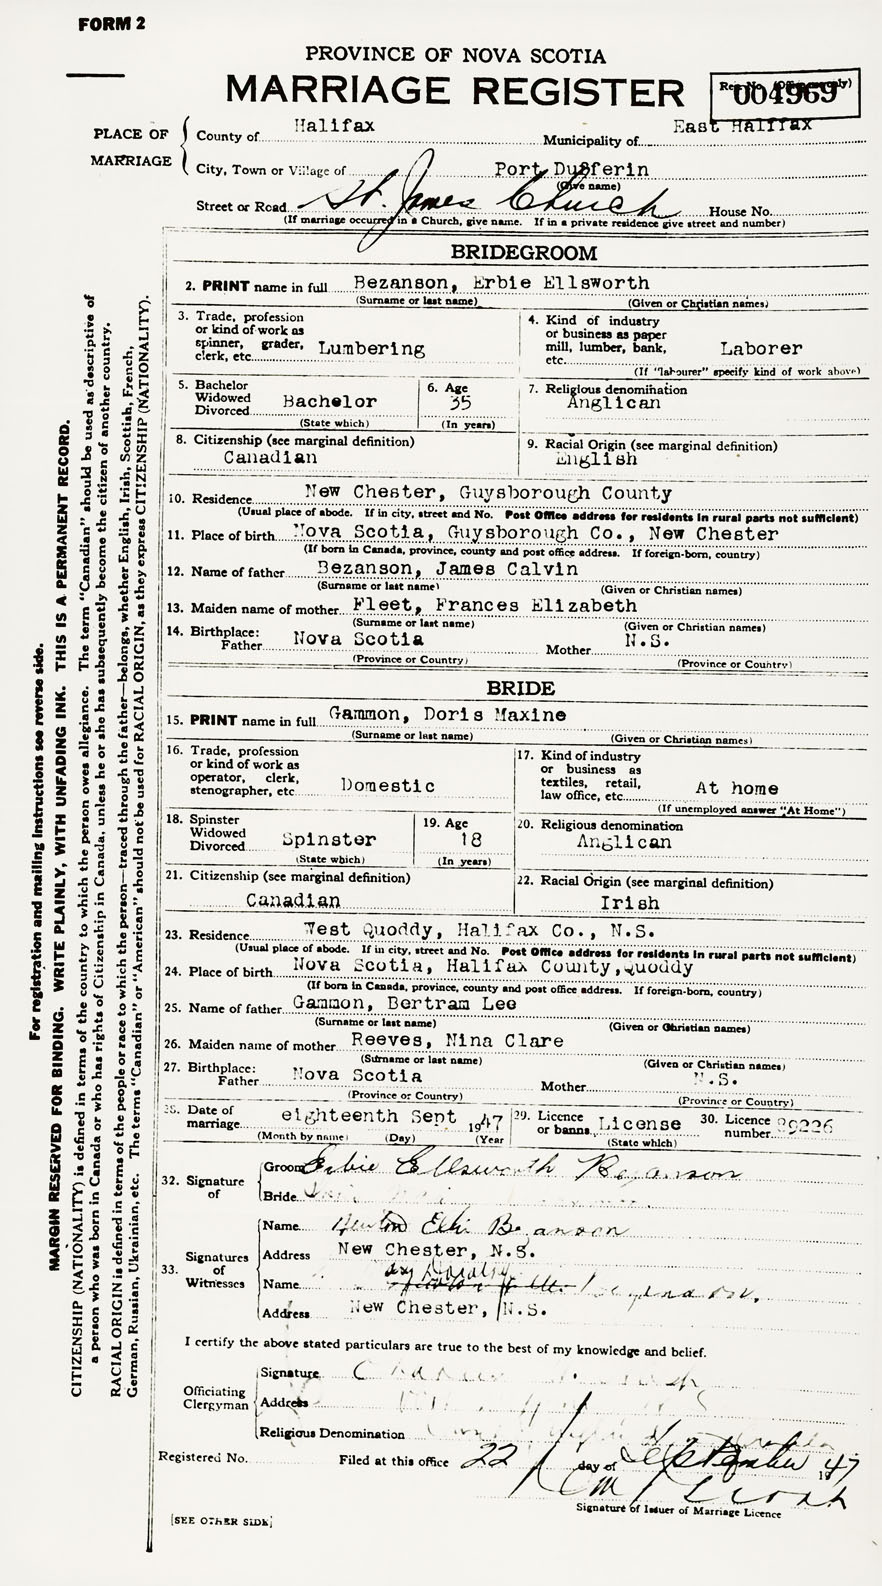 FORM 2
PROVINCE OF NOVA SCOTIA
MARRIAGE REGISTER
Reg. No. (Office use only)
004969
PLACE OF MARRIAGE
County of Halifax Municipality of East Halifax
City, Town or Village of Port Dufferin
(Give name)
Street or Road St. James Church House No.
(If marriage occurred in a Church, give name. If in a private residence give street and number)
BRIDEGROOM
2. PRINT name in full Bezanson, Erbie Ellsworth
(Surname or last name) (Given or Christian names)
3. Trade, profession
or kind of work as
spinner, grader,
clerk, etc. Lumbering
4. Kind of industry
or business as paper
mill, lumber, bank,
etc. Laborer
(If "labourer" specify kind of work above)
5. Bachelor
Widowed
Divorced Bachelor
(State which)
6. Age
35
(In years)
7. Religious denomination
Anglican
8. Citizenship (see marginal definition)
Canadian
9. Racial Origin (see marginal definition)
English
10. Residence New Chester, Guysborough County
(Usual place of abode. If in city, street and No. Post Office address for residents in rural parts not sufficient)
11. Place of birth Nova Scotia, Guysborough Co., New Chester
(If born in Canada, province, county and post office address. If foreign-born, country)
12. Name of father Bezanson, James Calvin
(Surname or last name) (Given or Christian names)
13. Maiden name of mother Fleet, Frances Elizabeth
(Surname or last name) (Given or Christian names)
14. Birthplace:
Father Nova Scotia Mother N.S.
(Province or Country) (Province or Country)
BRIDE
15. PRINT name in full Gammon, Doris Maxine
(Surname or last name) (Given or Christian names)
16. Trade, profession
or kind of work as
operator, clerk,
stenographer, etc. Domestic
17. Kind of industry
or business as
textiles, retail,
law office, etc. At home
(If unemployed answer "At Home")
18. Spinster
Widowed
Divorced Spinster
(State which)
19. Age
18
(In years)
20. Religious denomination
Anglican
21. Citizenship (see marginal definition)
Canadian
22. Racial Origin (see marginal definition)
Irish
23. Residence West Quoddy, Halifax Co., N.S.
(Usual place of abode. If in city, street and No. Post Office address for residents in rural parts not sufficient)
24. Place of birth Nova Scotia, Halifax County, Quoddy
(If born in Canada, province, county and post office address. If foreign-born, country)
25. Name of father Gammon, Bertram Lee
(Surname or last name) (Given or Christian names)
26. Maiden name of mother Reeves, Nina Clare
(Surname or last name) (Given or Christian names)
27. Birthplace:
Father Nova Scotia Mother N.S.
(Province or Country) (Province or Country)
28. Date of
marriage eighteenth Sept 1947
(Month by name) (Day) (Year)
29. Licence
or banns License
(State which)
30. Licence
number 89226
32. Signature
of
Groom Erbie Ellsworth Bezanson
Bride
33. Signatures
of
Witnesses
Name Bezanson
Address New Chester, N.S.
Name
Address New Chester, N.S.
I certify the above stated particulars are true to the best of my knowledge and belief.
Officiating
Clergyman
Signature
Address
Religious Denomination
Registered No. Filed at this office 22 day of September 1947
Signature of Issuer of Marriage Licence
[SEE OTHER SIDE]
For registration and mailing instructions see reverse side.
MARGIN RESERVED FOR BINDING. WRITE PLAINLY, WITH UNFADING INK. THIS IS A PERMANENT RECORD.
CITIZENSHIP (NATIONALITY) is defined in terms of the country to which the person owes allegiance. The term "Canadian" should be used as descriptive of
a person who was born in Canada or who has rights of Citizenship in Canada, unless he or she has subsequently become the citizen of another country.
RACIAL ORIGIN is defined in terms of the people or race to which the person—traced through the father—belongs, whether English, Irish, Scottish, French,
German, Russian, Ukrainian, etc. The terms "Canadian" or "American" should not be used for RACIAL ORIGIN, as they express CITIZENSHIP (NATIONALITY).